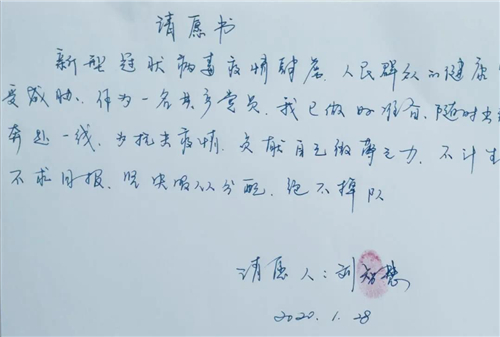 请愿书
新型冠状病毒疫情肆虐、人民群众的健康
受威胁。作为一名共产党员，我已做好准备、随时出
奔赴一线，为抗击疫情，贡献自己微薄之力，不计生
不求回报，坚决服从分配，绝不掉队
请愿人：刘
2020.1.28